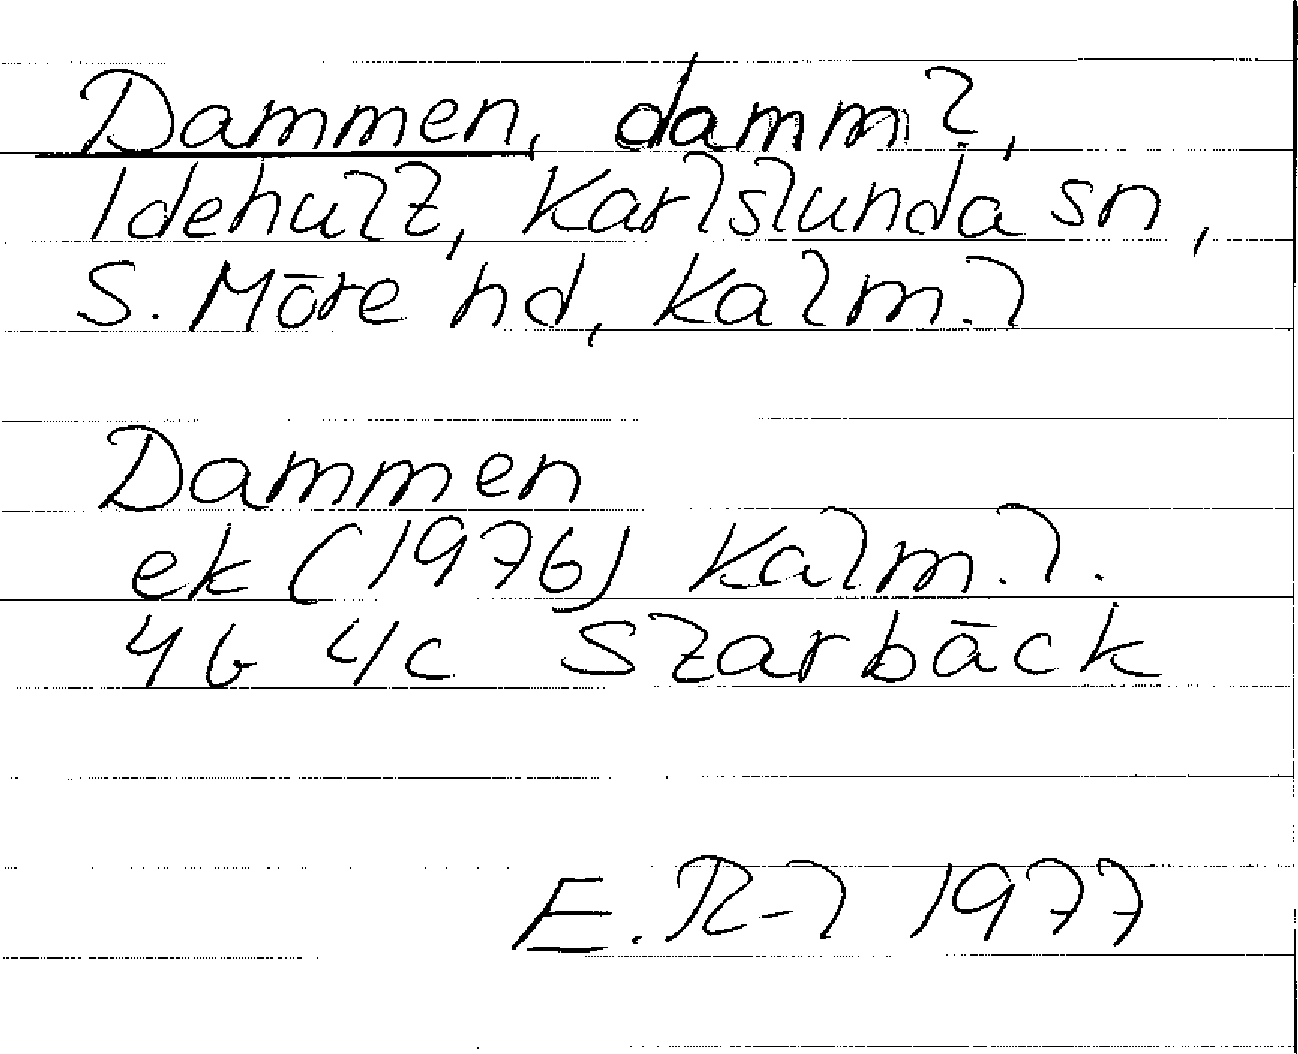 Dammen, damml,
Idehult, Karlslunda sn,
S. Möre hd, Kalm.l
Dammen
ek (1976) Kalm.l.
4G 4c Starbäck
E. R-l 1977